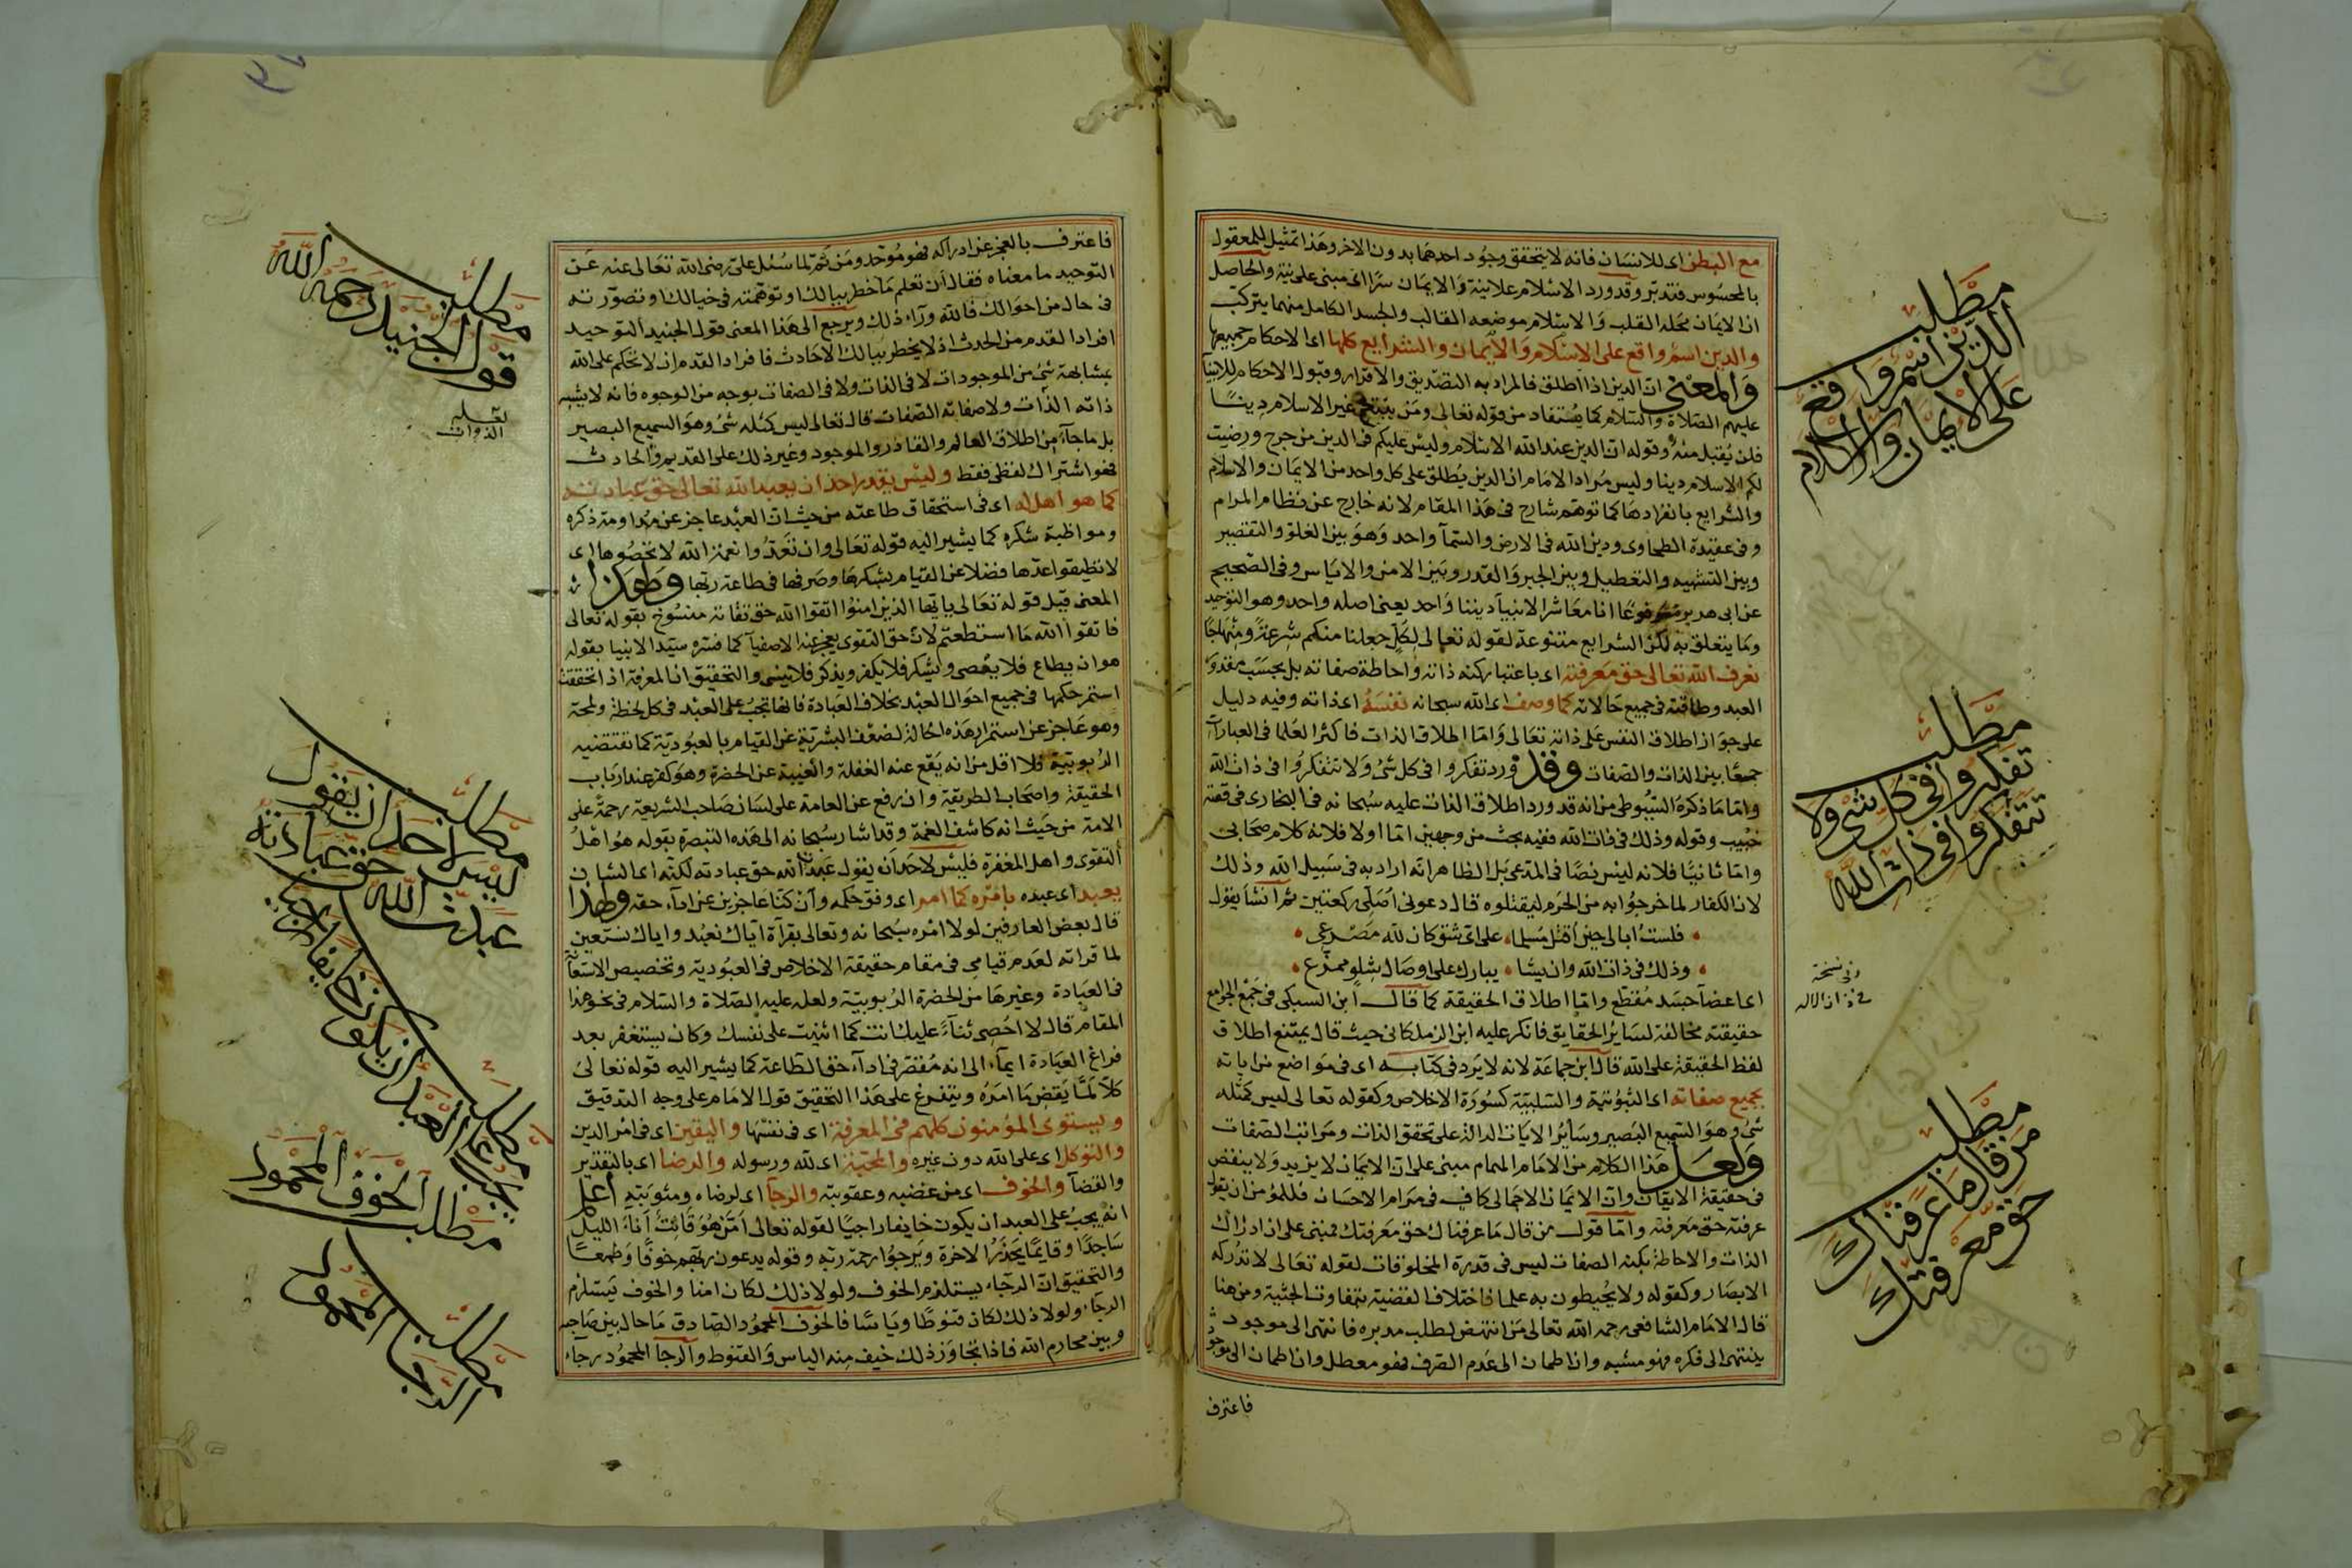 مع البطن اى للانسان فانه لا يتحقق وجود احدهما بدون الاخر وهذا تمثيل للمعقول
بالمحسوس فتدبر وقد ورد الاسلام علانية والايمان سرا اى مبنى على نية والحاصل
ان الايمان محله القلب والاسلام موضعه القالب والجسد الكامل منهما يتركب
والدين اسم واقع على الاسلام والايمان والشرايع كلها اى الاحكام جميعها
والمعنى ان الدين اذا اطلق فالمراد به التصديق والاقرار وقبول الاحكام للانبيا
عليهم الصلاة والسلام كما يستفاد من قوله تعالى ومن يبتغ غير الاسلام دينا
فلن يقبل منه وقوله ان الدين عند الله الاسلام وليس عليكم فى الدين من حرج ورضيت
لكم الاسلام دينا وليس مراد الامام ان الدين يطلق على كل واحد من الايمان والاسلام
والشرايع بانفرادها كما توهم شارح فى هذا المقام لانه خارج عن نظام المرام
وفى عقيدة الطحاوى ودين الله فى الارض والسمآ واحد وهو بين الغلو والتقصير
وبين التشبيه والتعطيل وبين الجبر والقدر وبين الامن والاياس وفى الصحيح
عن ابى هريرة مرفوعا انا معاشر الانبيآ ديننا واحد يعنى اصله واحد وهو التوحيد
وما يتعلق به لكن الشرايع متنوعة لقوله تعالى لكل جعلنا منكم شرعة ومنهاجا
نعرف الله تعالى حق معرفته اى باعتبار كنه ذاته واحاطة صفاته بل بحسب مقدور
العبد وطاقته فى جميع حالاته كما وصف اى الله سبحانه نفسه اى ذاته وفيه دليل
على جواز اطلاق النفس على ذاته تعالى واما اطلاق الذات فاكثر العلما فى العبارآت
جمعا بين الذات والصفات وقد ورد تفكروا فى كل شئ ولا تتفكروا فى ذات الله
واما ما ذكره السيوطى من انه قد ورد اطلاق الذات عليه سبحانه فى البخارى فى قصة
خبيب وقوله وذلك فى ذات الله ففيه بحث من وجهين اما اولا فلانه كلام صحابى
واما ثانيا فلانه ليس نصا فى المدعى بل الظاهر انه اراد به فى سبيل الله وذلك
لان الكفار لما خرجوا به من الحرم ليقتلوه قال دعونى اصلى ركعتين ثم انشا يقول
فلست ابالى حين اقتل مسلما على اى شق كان لله مصرعى
وذلك فى ذات الله وان يشا يبارك على اوصال شلو ممزع
اى اعضآ جسد مقطع واما اطلاق الحقيقة كما قال ابن السبكى فى جمع الجوامع
حقيقته مخالفة لساير الحقايق فانكر عليه ابن الزملكانى حيث قال يمتنع اطلاق
لفظ الحقيقة على الله قال ابن جماعة لانه لا يرد فى كتابه اى فى مواضع من اياته
بجميع صفاته اى الثبوتية والسلبية كسورة الاخلاص وكقوله تعالى ليس كمثله
شئ وهو السميع البصير وساير الايات الدالة على تحقق الذات ومراتب الصفات
ولعل هذا الكلام من الامام الهمام مبنى على ان الايمان لا يزيد ولا ينقص
فى حقيقة الايقان وان الايمان الاجمالى كاف فى مرام الاحسان فللمؤمن ان يقول
عرفته حق معرفته واما قول من قال ما عرفناك حق معرفتك فمبنى على ان ادراك
الذات والاحاطة بكنه الصفات ليس فى قدرة المخلوقات لقوله تعالى لا تدركه
الابصار وكقوله ولا يحيطون به علما فاختلاف القضية بتفاوت الحيثية ومن هنا
قال الامام الشافعى رحمه الله تعالى من انتهض لطلب مدبره فانتهى الى موجود
ينتهى الى فكره فهو مشبه وان اطمان الى عدم الصرف فهو معطل وان اطمان الى موجود
فاعترف
مطلب
الدين اسم واقع
على الايمان والاسلام
مطلب
تفكروا فى كل شئ ولا
تتفكروا فى ذات الله
وفى نسخة
فى ذات الاله
مطلب
من قال ما عرفناك
حق معرفتك
فاعترف بالعجز عن ادراكه فهو موحد ومن ثم لما سئل على رضى الله تعالى عنه عن
التوحيد ما معناه فقال ان تعلم ما خطر ببالك او توهمته فى خيالك او تصورته
فى حال من احوالك فالله ورآء ذلك ويرجع الى هذا المعنى قول الجنيد التوحيد
افراد القدم من الحدث اذ لا يخطر ببالك الا حادث فافراد القدم ان لا تحكم على الله
بمشابهة شئ من الموجودات لا فى الذات ولا فى الصفات بوجه من الوجوه فانه لا يشبه
ذاته الذات ولا صفاته الصفات قال تعالى ليس كمثله شئ وهو السميع البصير
بل ما جآء من اطلاق العالم والقادر والموجود وغير ذلك على القديم والحادث
فهو اشتراك لفظى فقط وليس يقدر احد ان يعبد الله تعالى حق عبادته
كما هو اهل له اى فى استحقاق طاعته من حيث ان العبد عاجز عن مداومة ذكره
ومواظبة شكره كما يشير اليه قوله تعالى وان تعدوا نعمة الله لا تحصوها اى
لا تطيقوا عدها فضلا عن القيام بشكرها وصرفها فى طاعة ربها ولهذا
المعنى قيل قوله تعالى يا ايها الذين امنوا اتقوا الله حق تقاته منسوخ بقوله تعالى
فاتقوا الله ما استطعتم لان حق التقوى يعجز عنه الاصفيآ كما فسره سيد الانبيا بقوله
هو ان يطاع فلا يعصى ويشكر فلا يكفر ويذكر فلا ينسى والتحقيق ان المعرفة اذا تحققت
استمر حكمها فى جميع احوال العبد بخلاف العبادة فانها تجب على العبد فى كل لحظة ولمحة
وهو عاجز عن استمرار هذه الحالة لضعف البشرية عن القيام بالعبودية كما تقتضيه
الربوبية فلا اقل من انه يقع عنه الغفلة والغيبة عن الحضرة وهو كفر عند ارباب
الحقيقة واصحاب الطريقة وان رفع عن العامة على لسان صاحب الشريعة رحمة على
الامة من حيث انه كاشف الغمة وقد اشار سبحانه الى هذه التبصرة بقوله هو اهل
التقوى واهل المغفرة فليس لاحد ان يقول عبدت الله حق عبادته لكنه اى الشان
يعبد اى عبده بامره كما امر اى وفق حكمه وان كنا عاجزين عن ادآء حقه ولهذا
قال بعض العارفين لولا امره سبحانه وتعالى بقرآة اياك نعبد واياك نستعين
لما قراته لعدم قيامى فى مقام حقيقة الاخلاص فى العبودية وتخصيص الاستعانة
فى العبادة وغيرها من الحضرة الربوبية ولعله عليه الصلاة والسلام فى نحو هذا
المقام قال لا احصى ثنآء عليك انت كما اثنيت على نفسك وكان يستغفر بعد
فراغ العبادة ايمآء الى انه مقصر فى ادآء حق الطاعة كما يشير اليه قوله تعالى
كلا لما يقض ما امره ويتفرع على هذا التحقيق قول الامام على وجه التدقيق
ويستوى المؤمنون كلهم فى المعرفة اى فى نفسها واليقين اى فى امر الدين
والتوكل اى على الله دون غيره والمحبة اى لله ورسوله والرضا اى بالتقدير
والقضآ والخوف اى من غضبه وعقوبته والرجآ اى لرضاه ومثوبته اعلم
انه يجب على العبد ان يكون خايفا راجيا لقوله تعالى امن هو قانت اناء الليل
ساجدا وقايما يحذر الاخرة ويرجوا رحمة ربه وقوله يدعون ربهم خوفا وطمعا
والتحقيق ان الرجاء يستلزم الخوف ولولا ذلك لكان امنا والخوف يستلزم
الرجاء ولولا ذلك لكان قنوطا وياسا فالخوف المحمود الصادق ما حال بين صاحبه
وبين محارم الله فاذا تجاوز ذلك خيف منه الياس والقنوط والرجا المحمود رجآء
مطلب
قول الجنيد رحمه الله
لعله
الذوات
مطلب
ليس لاحد ان يقول
عبدت الله حق عبادته
مطلب
يجب على العبد ان يكون خايفا راجيا
مطلب الخوف المحمود
مطلب
الرجا المحمود